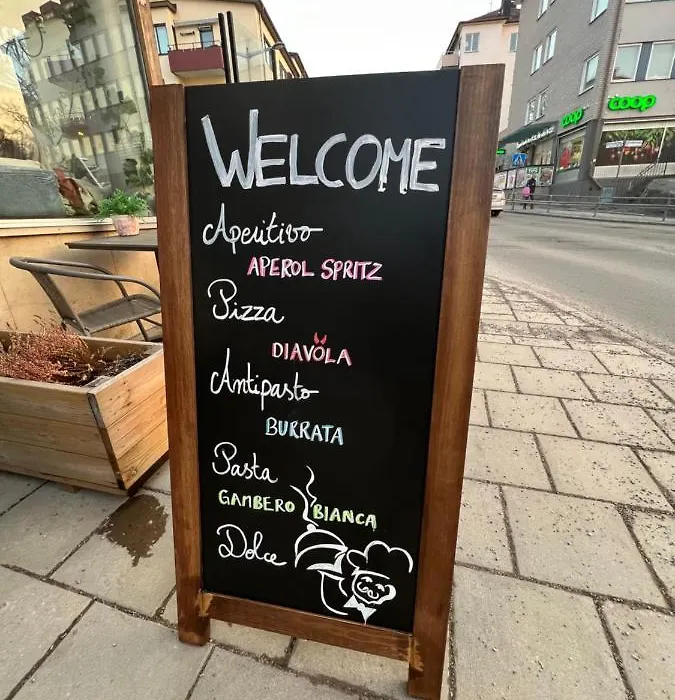 WELCOME
Aperitivo
APEROL SPRITZ
Pizza
DIAVÖLA
Antipasto
BURRATA
Pasta
GAMBERO BIANCA
Dolce
coop
coop